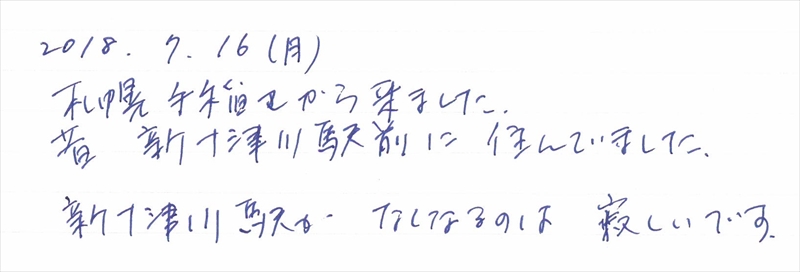 2018. 7. 16(月)
札幌 手稲区から来ました。
昔 新十津川駅前に 住んでいました。
新十津川駅が なくなるのは 寂しいです。